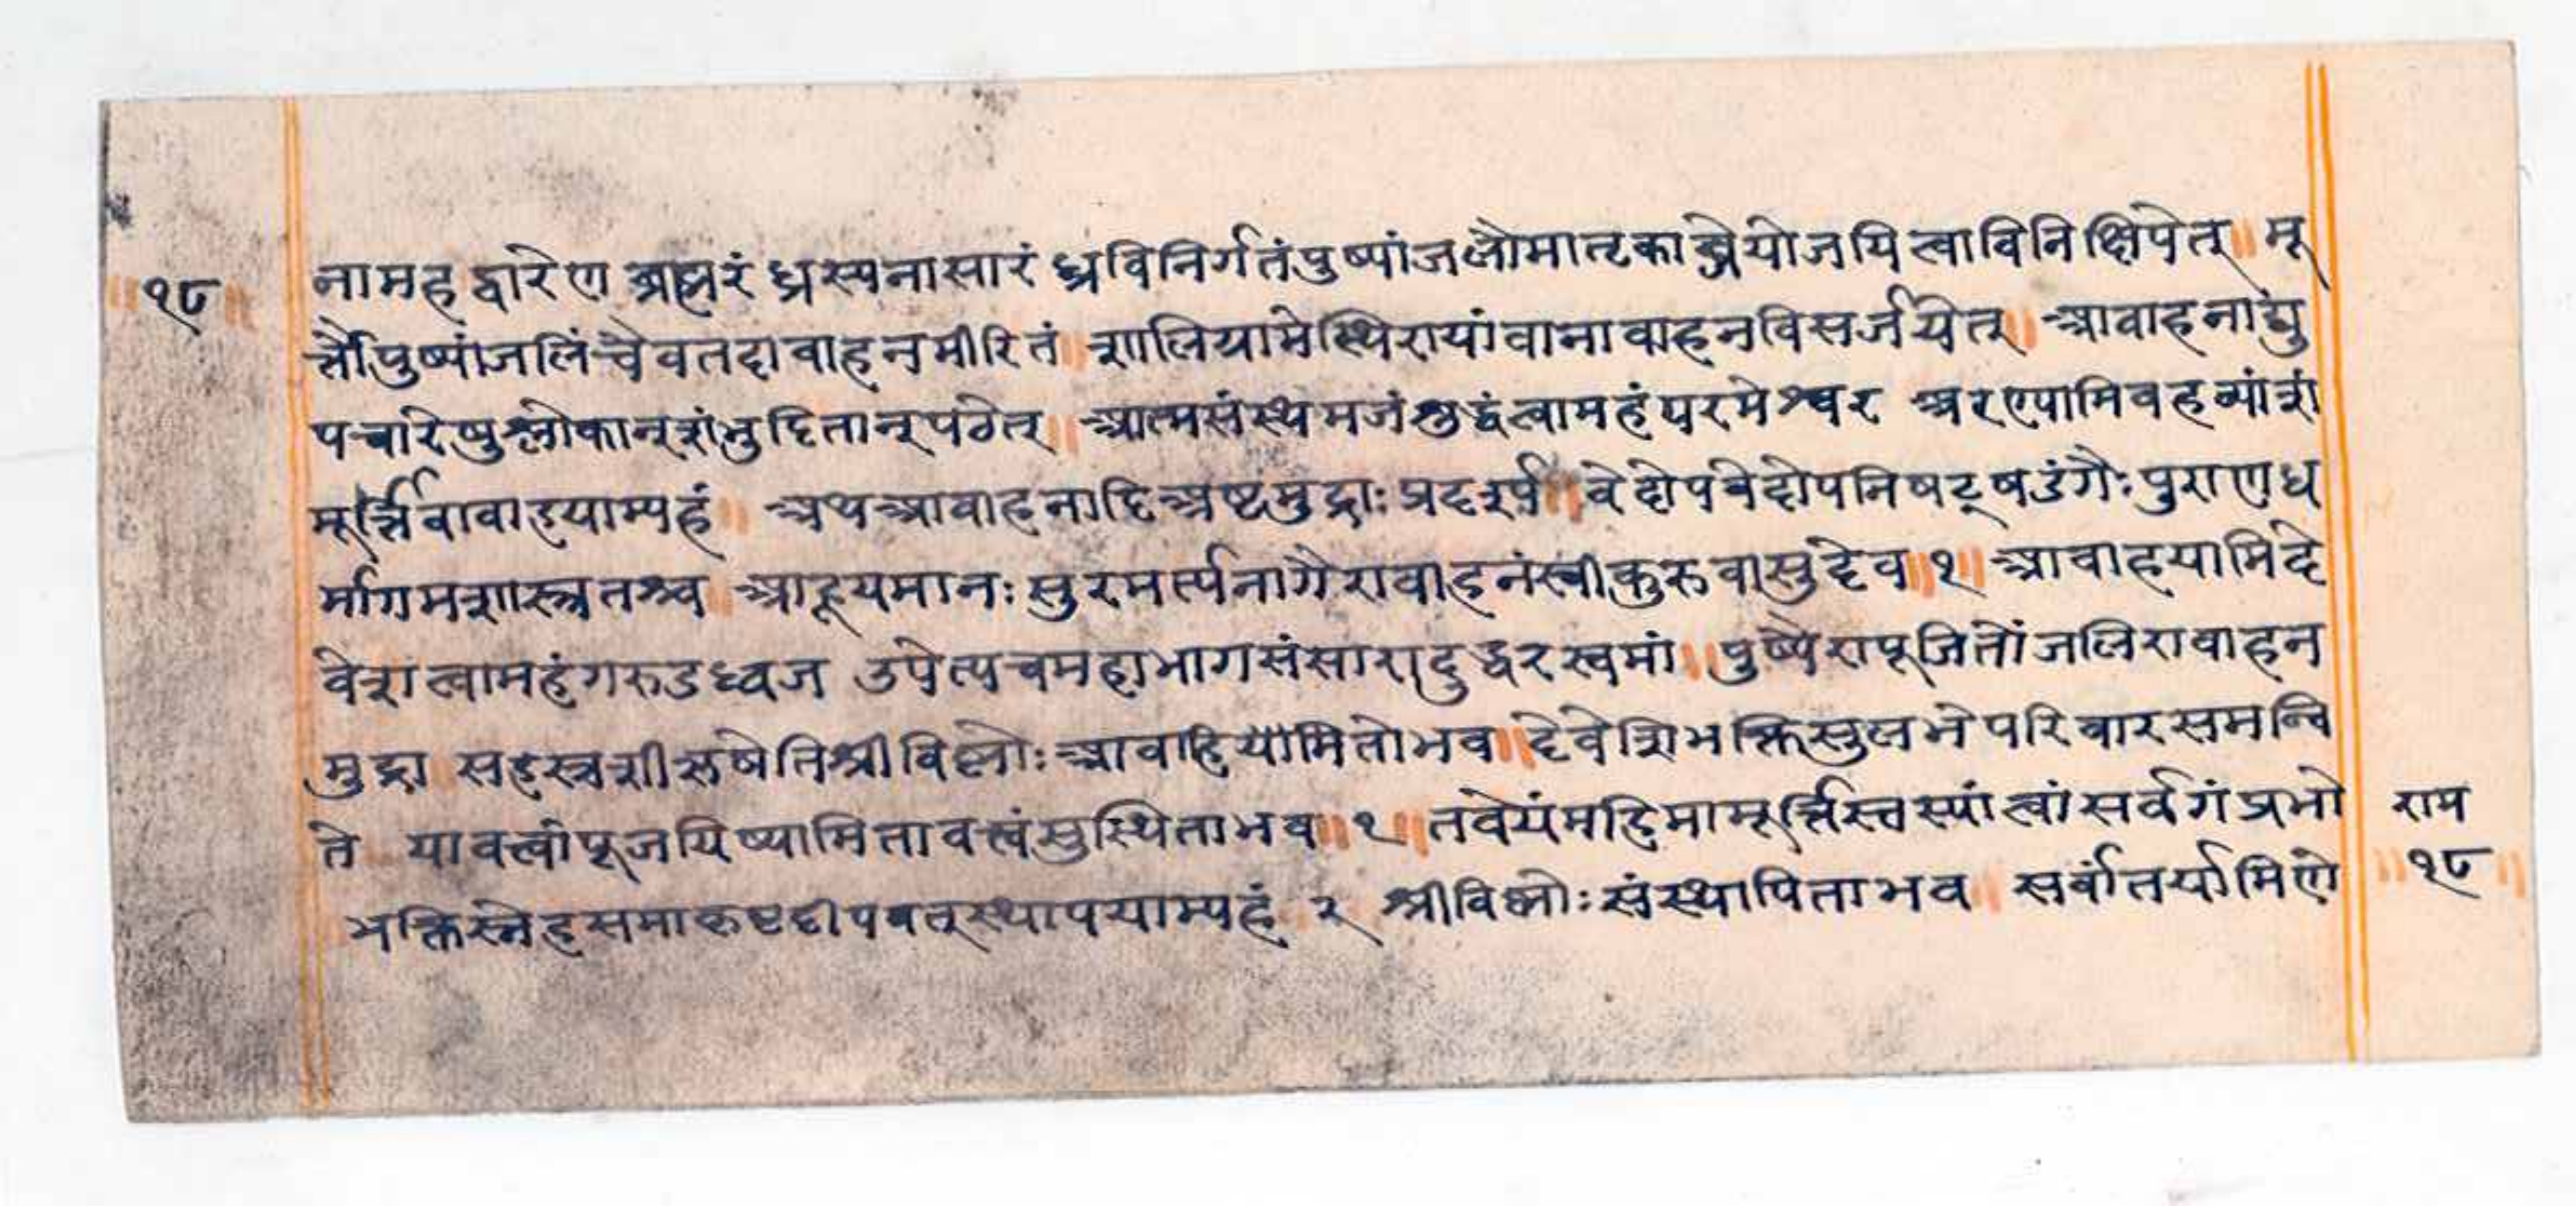 ॥१८॥ नामहद्वारेण ब्रह्मरंध्रस्यनासारंध्रविनिर्गतंपुष्पांजलौमातृकाब्जेयोजयित्वाविनिक्षिपेत्॥मू
र्त्तौपुष्पांजलिंचैवतदावाहनमीरितं॥शालिग्रामेस्थिरायांवानावाहनविसर्जयेत्॥आवाहनाद्यु
पचारेषुश्लोकान्शंभुदितान्पठेत्॥आत्मसंस्थमजंशुद्धंत्वामहंपरमेश्वर अरण्यामिवहव्यांशं
मूर्त्तिवावाहयाम्यहं॥अथआवाहनादिअष्टमुद्राःप्रदर्श्य॥वेदोपवेदोपनिषट्षडंगैःपुराणध
र्मागमशास्त्रतश्व आहूयमानःसुरमर्त्यनागैरावाहनंस्वीकुरुवासुदेव॥१॥आवाहयामिदे
वेशत्वामहंगरुडध्वज उपेत्यचमहाभागसंसारादुद्धरस्वमां॥पुष्पैरापूजितोंजलिरावाहन
मुद्रा सहस्त्रशीरुषेतिश्रीविष्णोःआवाहियामितोभव॥देवेशिभक्तिसुलभेपरिवारसमन्वि
ते यावत्वांपूजयिष्यामितावत्त्वंसुस्थिताभव॥१॥तवेयंमहिमामूर्त्तिस्तस्यांत्वांसर्वगंप्रभो राम
भक्तिस्नेहसमाकृष्टदीपवत्स्थापयाम्यहं २ श्रीविष्णोःसंस्थापिताभव॥सर्वांतर्यामिणे ॥१८॥